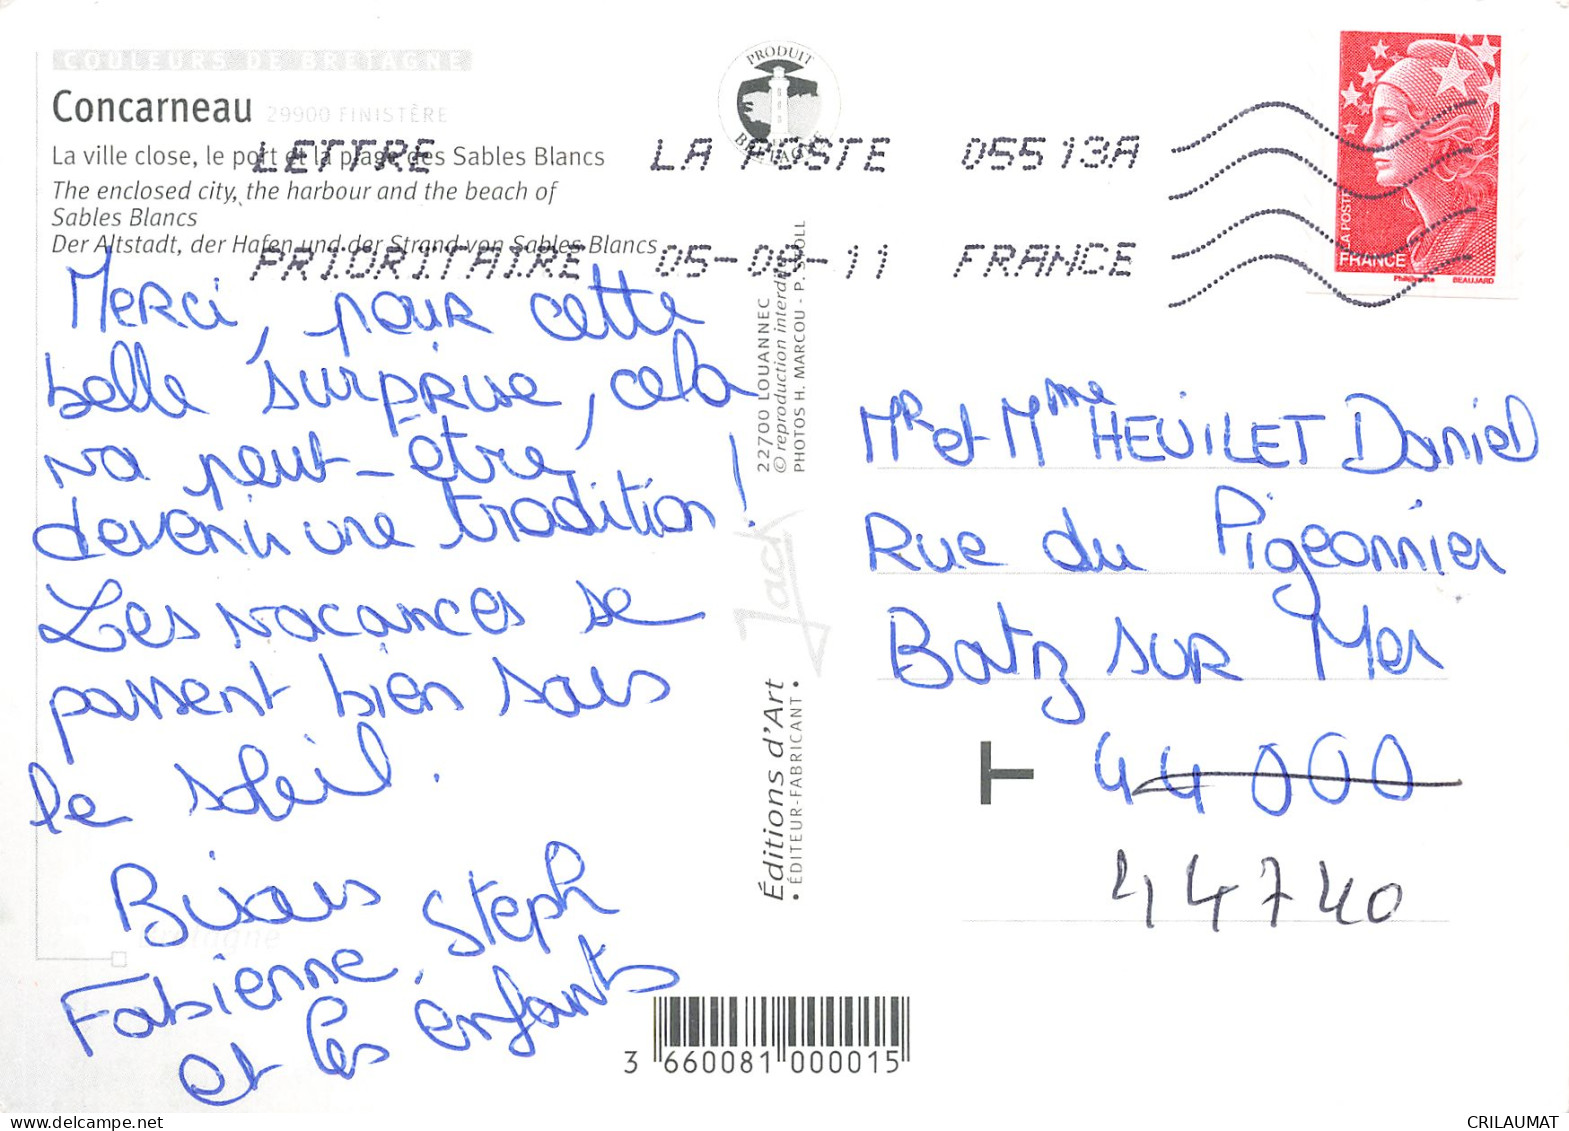 COULEURS DE BRETAGNE
Concarneau 29900 FINISTÈRE
La ville close, le port et la plage des Sables Blancs
The enclosed city, the harbour and the beach of
Sables Blancs
Der Altstadt, der Hafen und der Strand von Sables Blancs
PRODUIT
BRETAGNE
LETTRE LA POSTE 05513A
PRIORITAIRE 05-08-11 FRANCE
LA POSTE
FRANCE
BEAUJARD
Merci, pour cette
belle surprise, cela
va peut-être,
devenir une tradition !
Les vacances se
passent bien sous
le soleil.
Bisous
Fabienne, Steph
et les enfants
22700 LOUANNEC
© reproduction interdite
PHOTOS H. MARCOU - P. STOLL
Jack
Éditions d'Art
• ÉDITEUR-FABRICANT •
Mr et Mme HEUILET Daniel
Rue du Pigeonnier
Batz sur Mer
T 44000
44740
3 660081 000015
CRILAUMAT